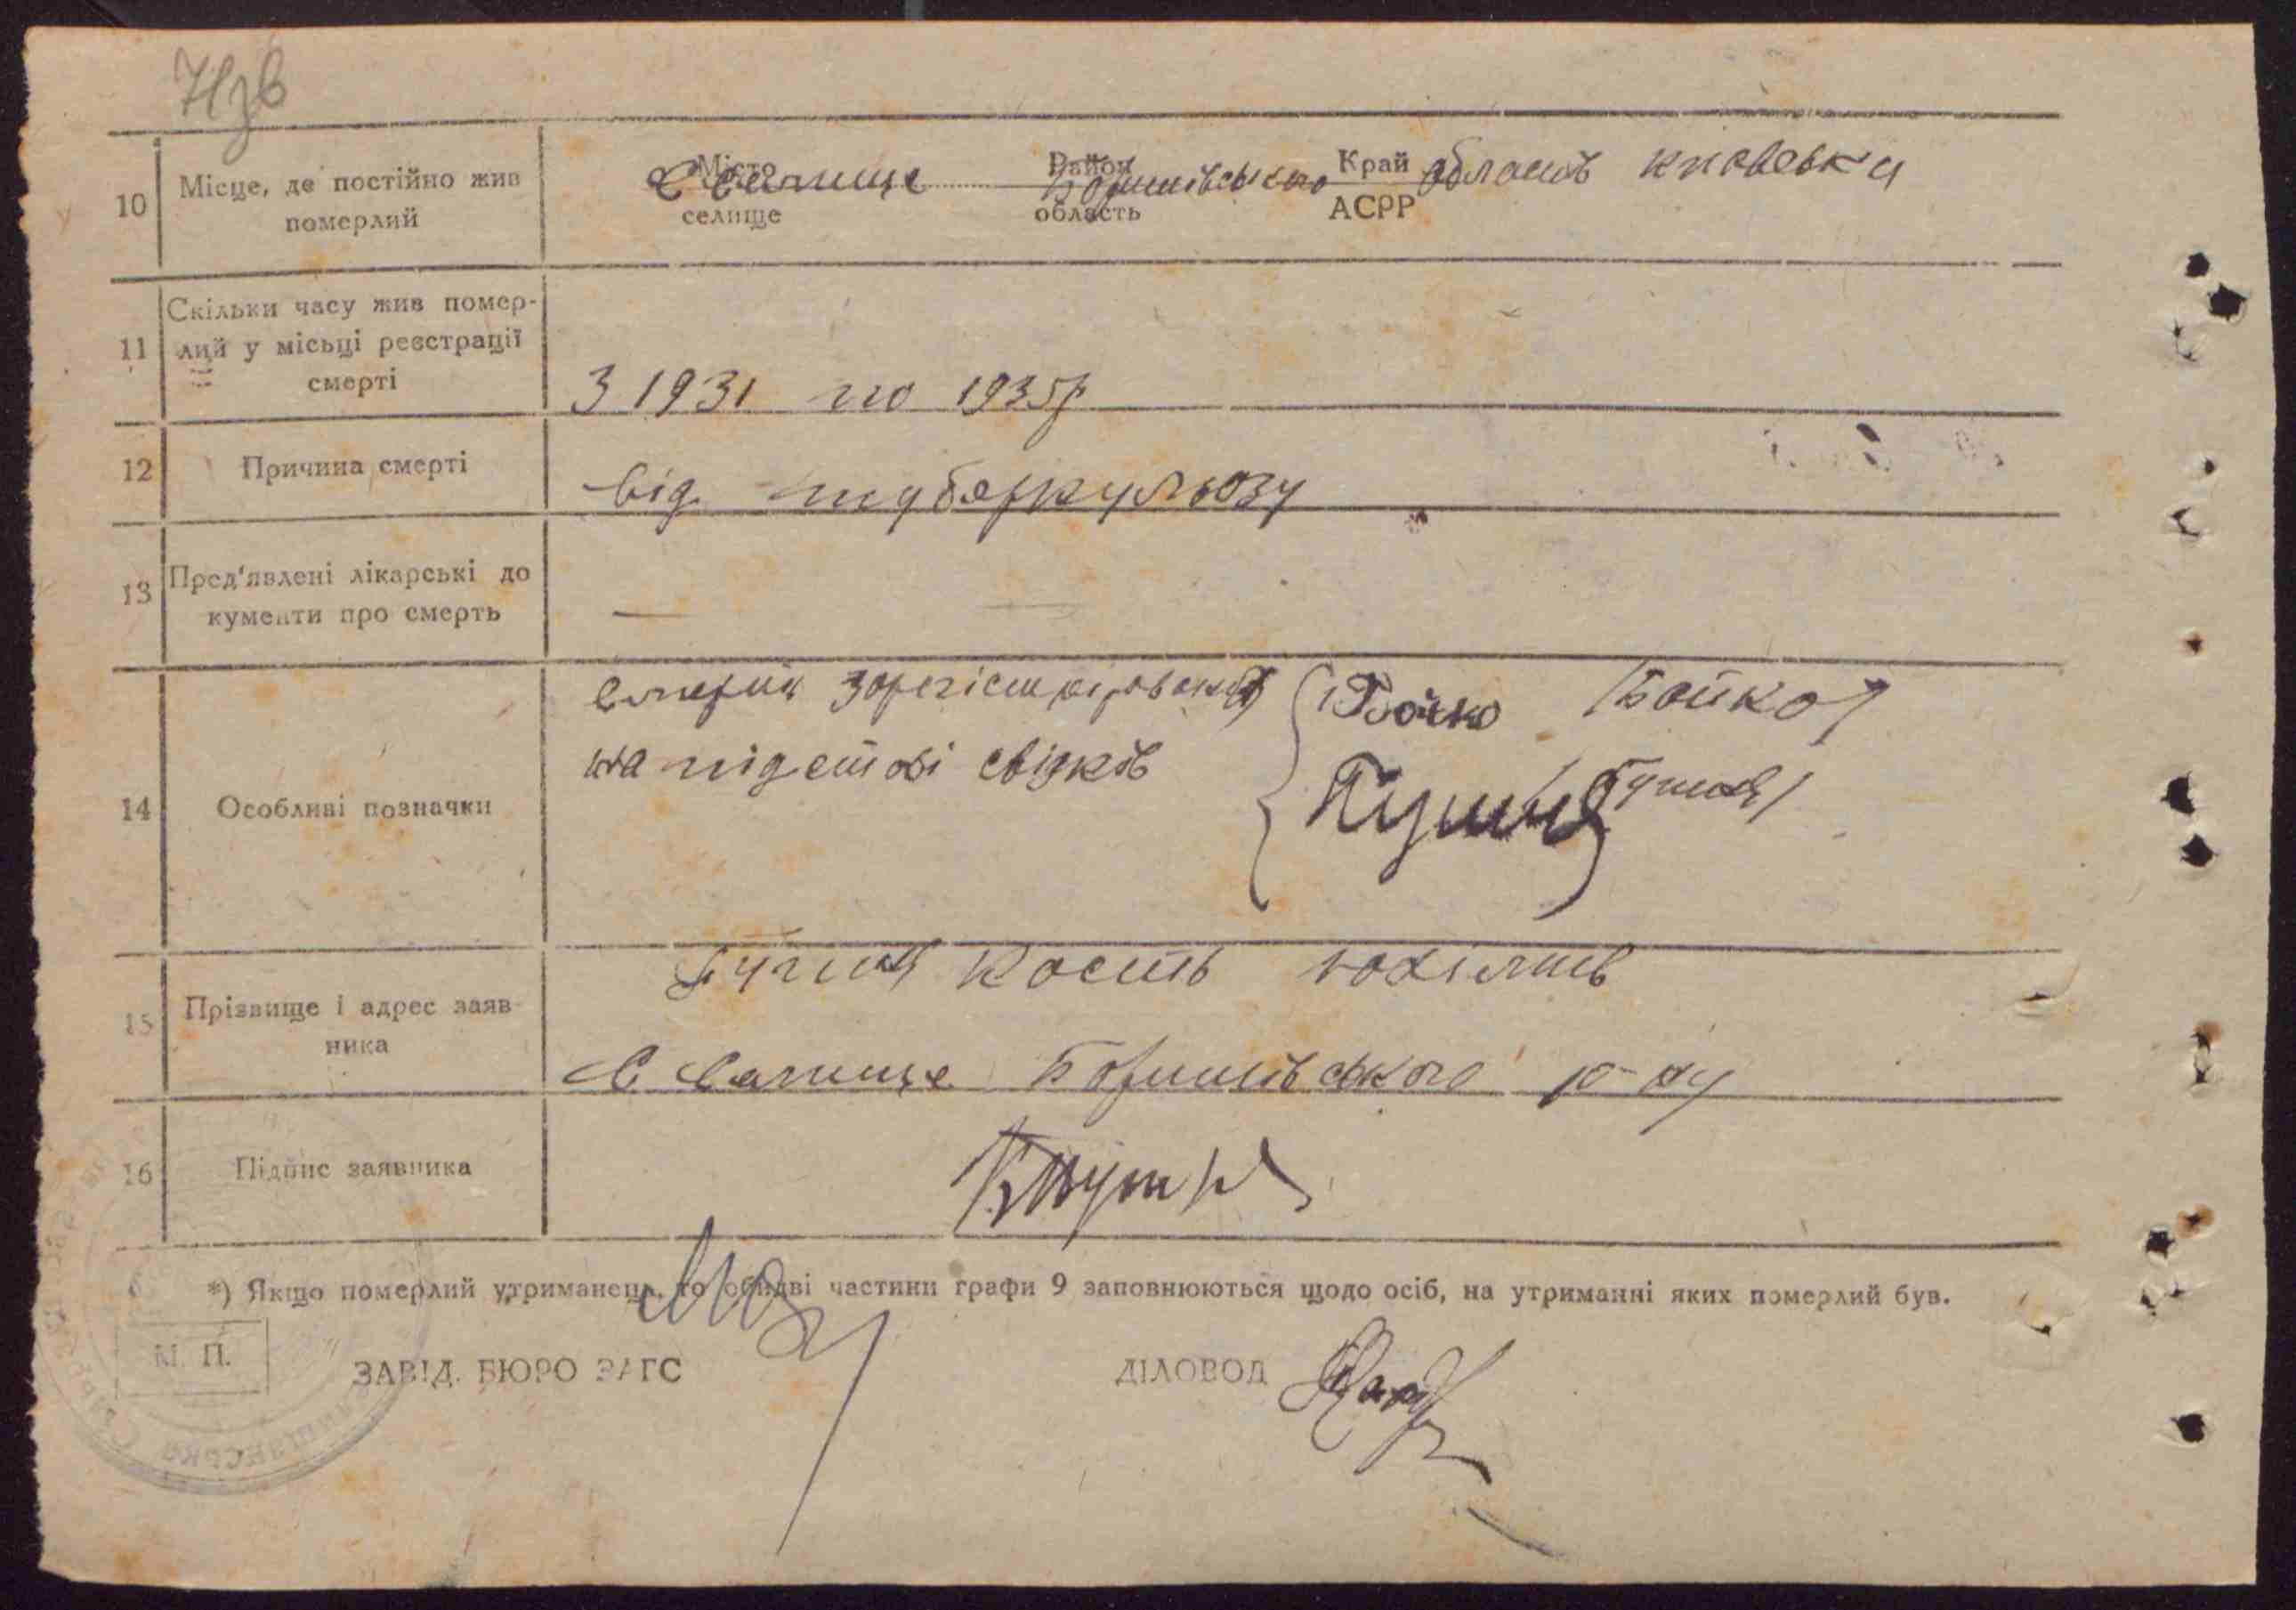 10 Місце, де постійно жив померлий
Місто селище Район область Край АСРР
с Селище Боришівського область київська
11 Скільки часу жив помер-
лий у місьці реєстрації
смерті
З 1931 по 1935р
12 Причина смерті
від туберкульозу
13 Пред'явлені лікарські до
кументи про смерть
—
14 Особливі позначки
смерть зарегістрірована Бойко /Бойко/
на підставі свідків
15 Прізвище і адрес заяв-
ника
Кость
с Селище Боришівського р-ну
16 Підпис заявника
*) Якщо померлий утриманець, то обидві частини графи 9 заповнюються щодо осіб, на утриманні яких померлий був.
М. П.
ЗАВІД. БЮРО ЗАГС ДІЛОВОД